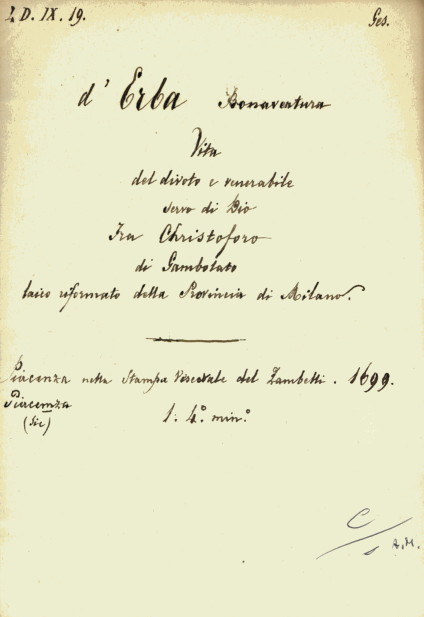 4 D. IX. 19. Ges.
d' Erba Bonaventura
Vita
del divoto e venerabile
servo di Dio
Fra Christoforo
di Gambolato
laico riformato della Provincia di Milano.
Piacenza nella Stampa Vescovale del Zambelli. 1699.
Piacemza
(sic)
1: 4.° min.°
C
A.M.